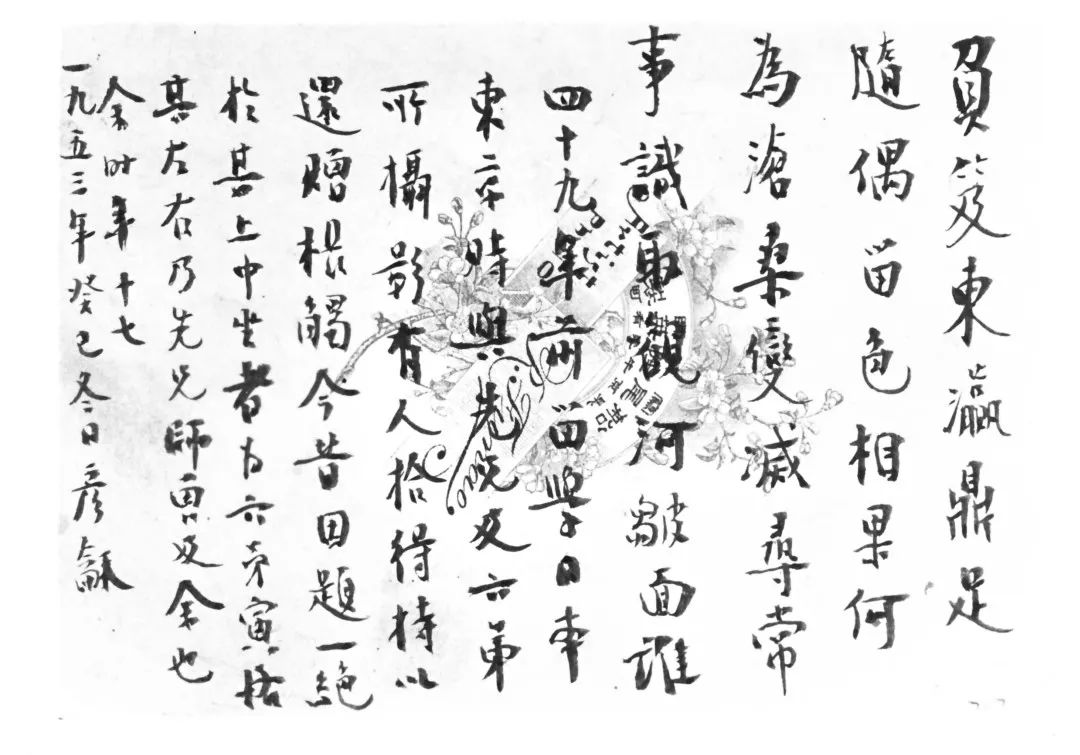 負笈東瀛鼎足
隨偶留色相果何
為滄桑變滅尋常
事觀河皺面誰
四十九年前留學日本
東京時與先兄及六弟
所攝影有人拾得持以
還贈棖觸今昔因題一絕
於其上中坐者為六弟寅恪
其左右乃先兄師曾及余也
余时年十七
一九五三年癸巳冬日彥龢